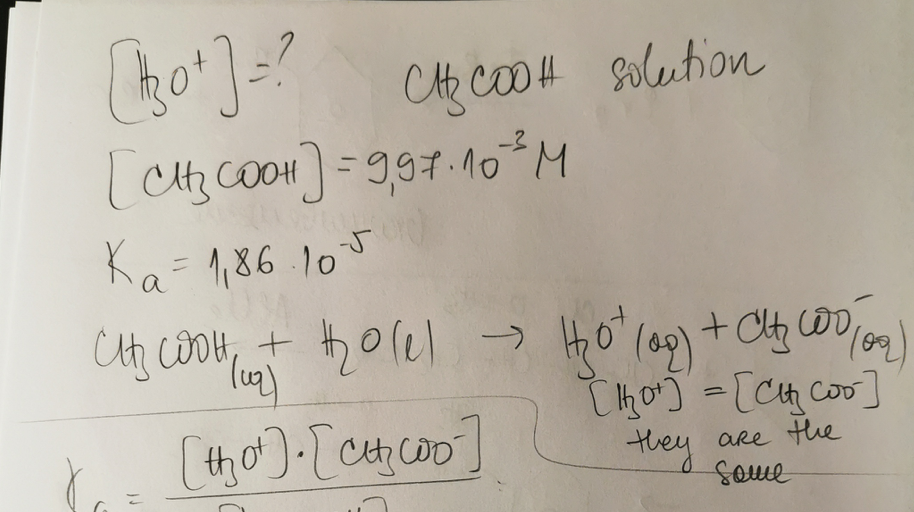 [H3O+] = ? CH3COOH solution
[CH3COOH] = 9,97 · 10^-3 M
Ka = 1,86 · 10^-5
CH3COOH(aq) + H2O(l) → H3O+(aq) + CH3COO-(aq)
[H3O+] = [CH3COO-]
they are the
same
Ka = [H3O+] · [CH3COO-]